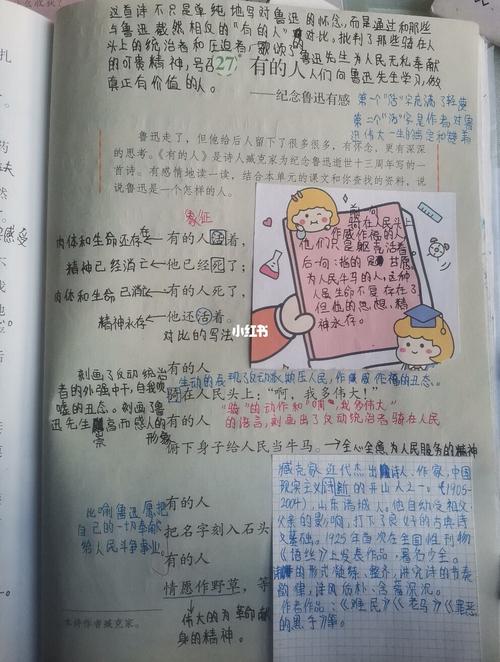 这首诗不只是单纯地写对鲁迅的怀念,而是通过和那些
与鲁迅截然相反的“有的人”对比,批判了那些骑在人
头上的统治者和压迫者,歌颂了鲁迅先生为人民无私奉献
的可贵精神,号召人们向鲁迅先生学习,做
真正有价值的人。
27 有的人
——纪念鲁迅有感
第一个“活”字充满了轻蔑
第二个“活”字是作者对鲁
迅伟大一生的
鲁迅走了,但他给后人留下了很多很多,有怀念,更有深深
的思考。《有的人》是诗人臧克家为纪念鲁迅逝世十三周年写的一
首诗。有感情地读一读,结合本单元的课文和你查找的资料,说
说鲁迅是一个怎样的人。
象征
肉体和生命还存 有的人活着,
精神已经消亡 他已经死了;
肉体和生命已消 有的人死了,
精神永存 他还活着。
对比的写法
前一句
骑在人民头上
作威作福的人
他们只是躯壳活着
后一句:指的是甘愿
为人民牛马的人,这种
人民生命不复存在了
但他的思想、精
神永存。
小红书
刻画了反动统治
者的外强中干,自我吹
嘘的丑态。刻画了鲁
迅先生崇高而感人的
形象
有的人
生动的表现了反动派欺压人民,作威作福的丑态。
骑在人民头上:“啊,我多伟大!”
“骑”的动作和“啊,我多伟大”
的语言,刻画出了反动统治者骑在人民
有的人
俯下身子给人民当牛马。→全心全意为人民服务的精神
有的人
把名字刻入石头
有的人
情愿作野草,等
比喻鲁迅愿把
自己的一切奉献
给人民斗争事业。
伟大的为革命献
身的精神。
本诗作者臧克家。
臧克家,近代杰出诗人、作家,中国
现实主义新诗的开山人之一。(1905-
2004),山东诸城人。他自幼受祖父、
父亲的影响,打下了良好的古典诗
文基础。1925年首次在全国性刊物
《语丝》上发表作品,署名少全。
的形式凝练、整齐,讲究诗的节奏
韵律,诗风质朴、含蓄深沉。
作者作品:《难民》《老马》《罪恶
的黑手》等。